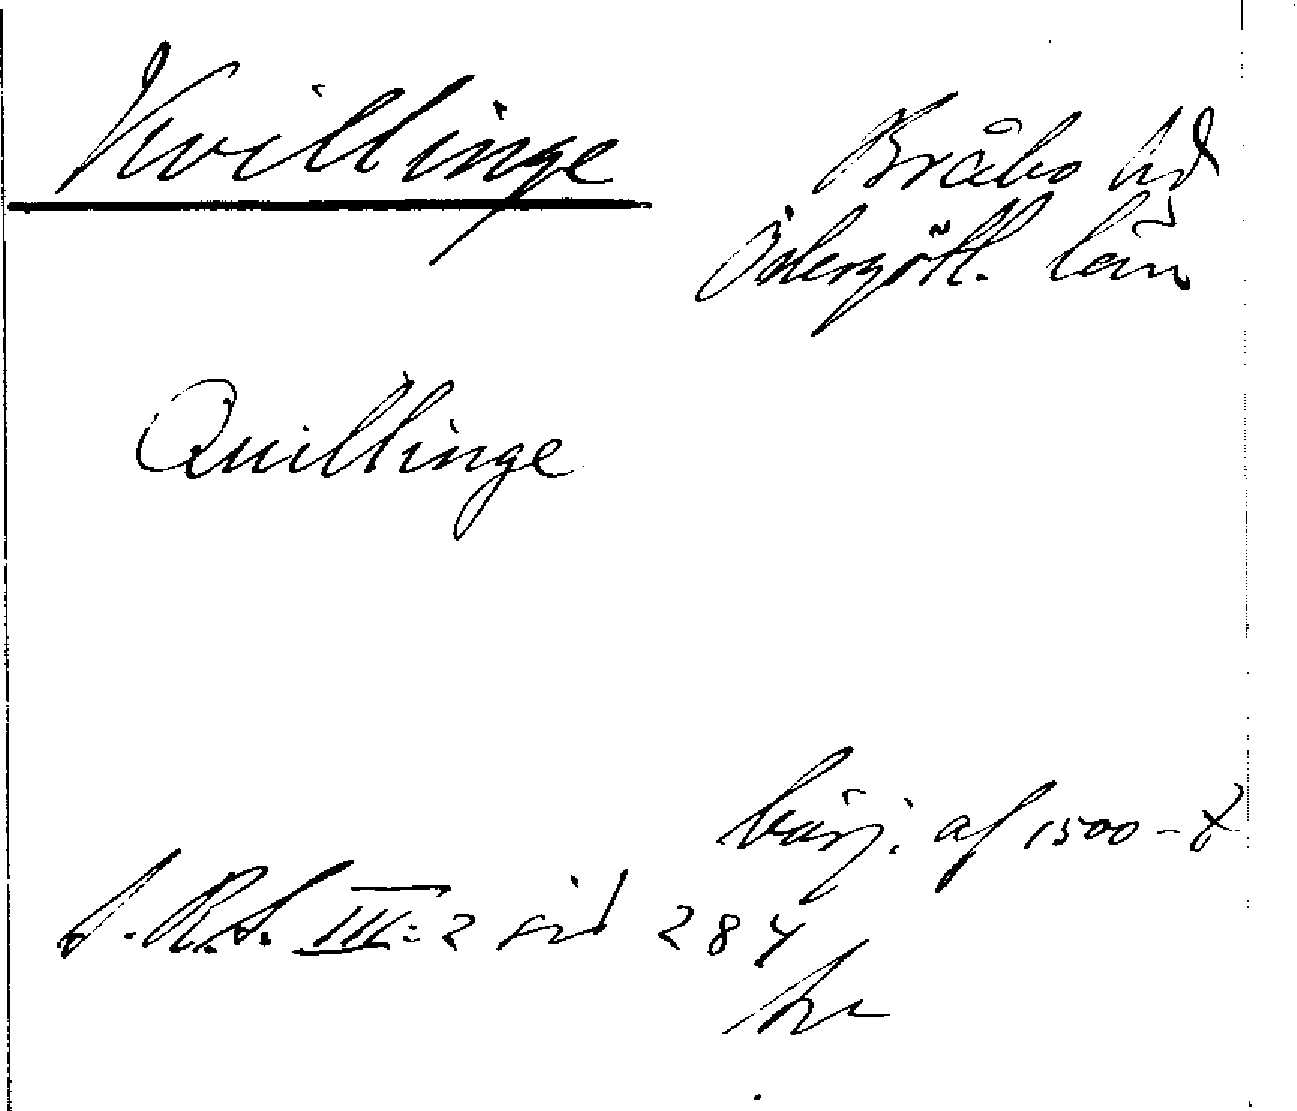 Kvillinge
Bråbo hd
Östergötl. län
Quillinge
börj. af 1500-t
S.R.S. III:2 sid 284